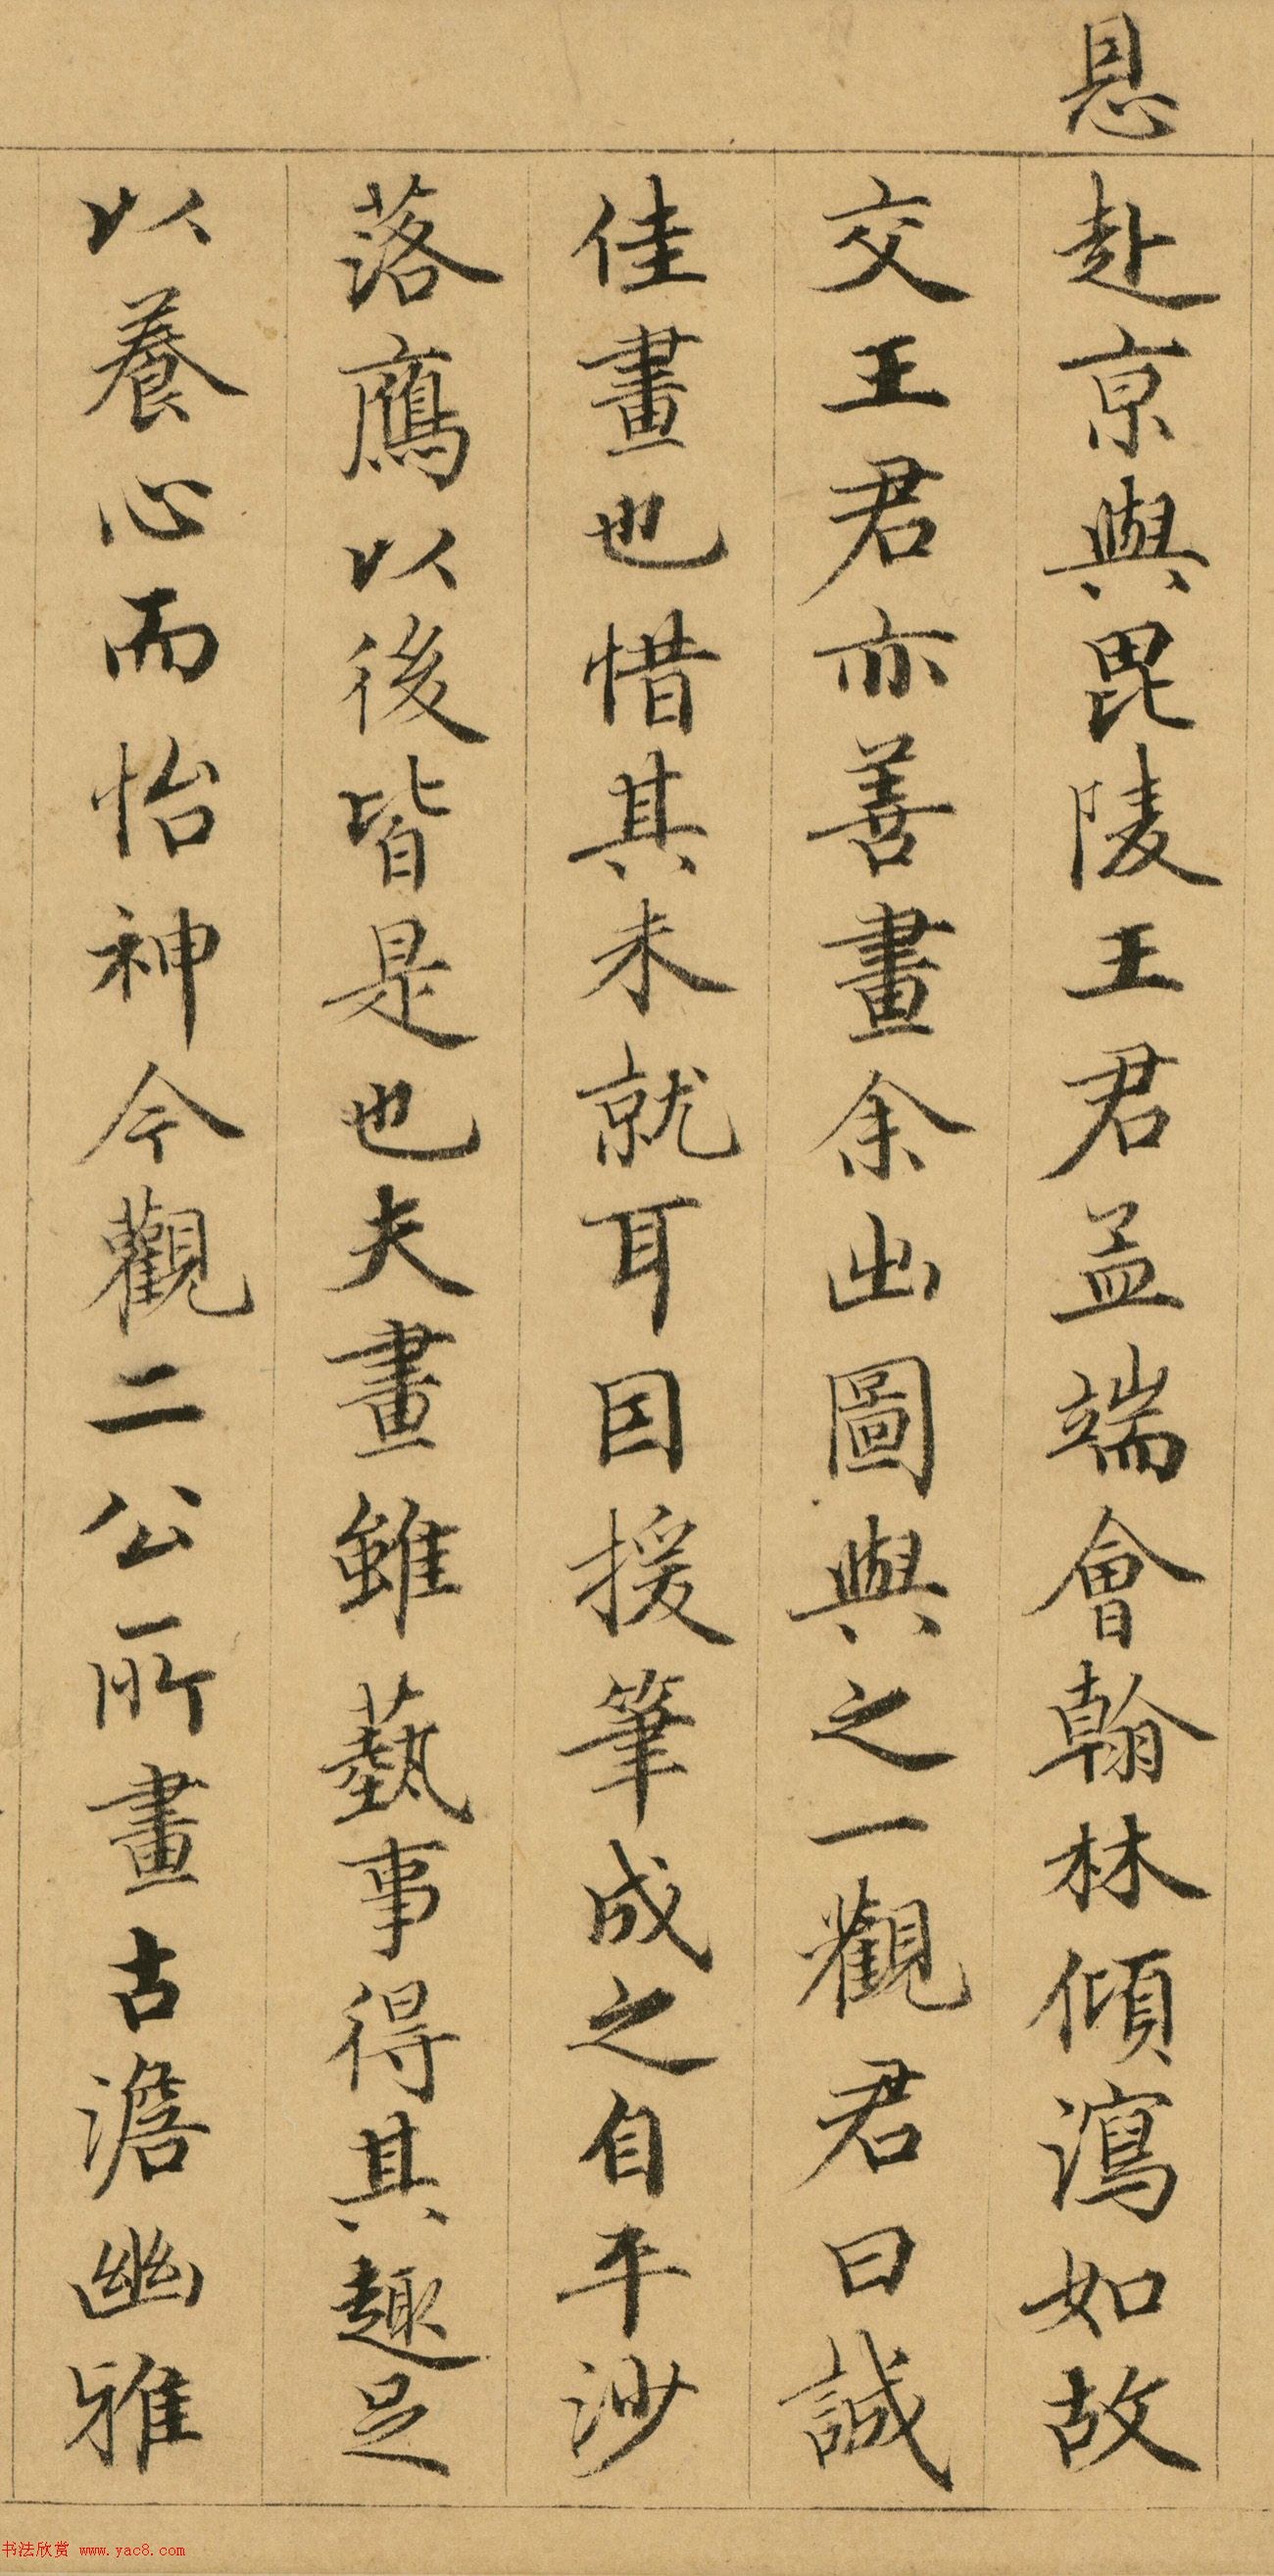 恩
赴京與毘陵王君孟端會翰林傾瀉如故
交王君亦善畫余出圖與之一觀君曰誠
佳畫也惜其未就耳因援筆成之自平沙
落鴈以後皆是也夫畫雖藝事得其趣足
以養心而怡神今觀二公所畫古澹幽雅
书法欣赏 www.yac8.com